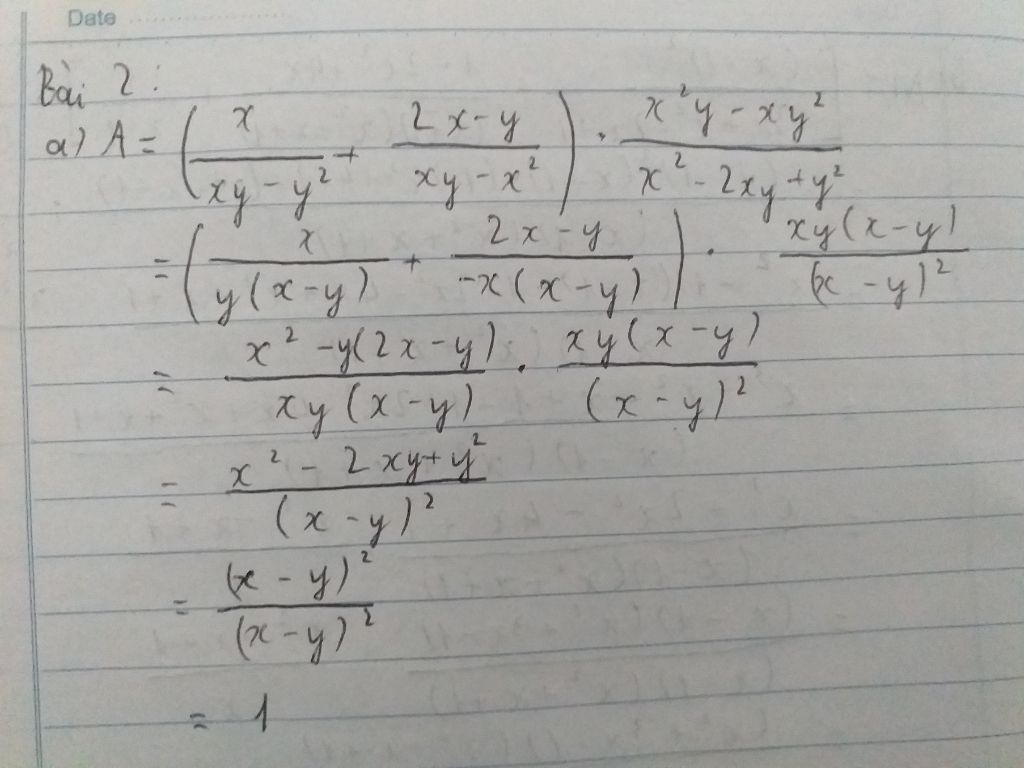 Date
Bài 2:
a) A = (x/(xy - y²) + (2x - y)/(xy - x²)) . (x²y - xy²)/(x² - 2xy + y²)
= (x/(y(x - y)) + (2x - y)/(-x(x - y))) . (xy(x - y))/((x - y)²)
= (x² - y(2x - y))/(xy(x - y)) . (xy(x - y))/((x - y)²)
= (x² - 2xy + y²)/((x - y)²)
= ((x - y)²)/((x - y)²)
= 1